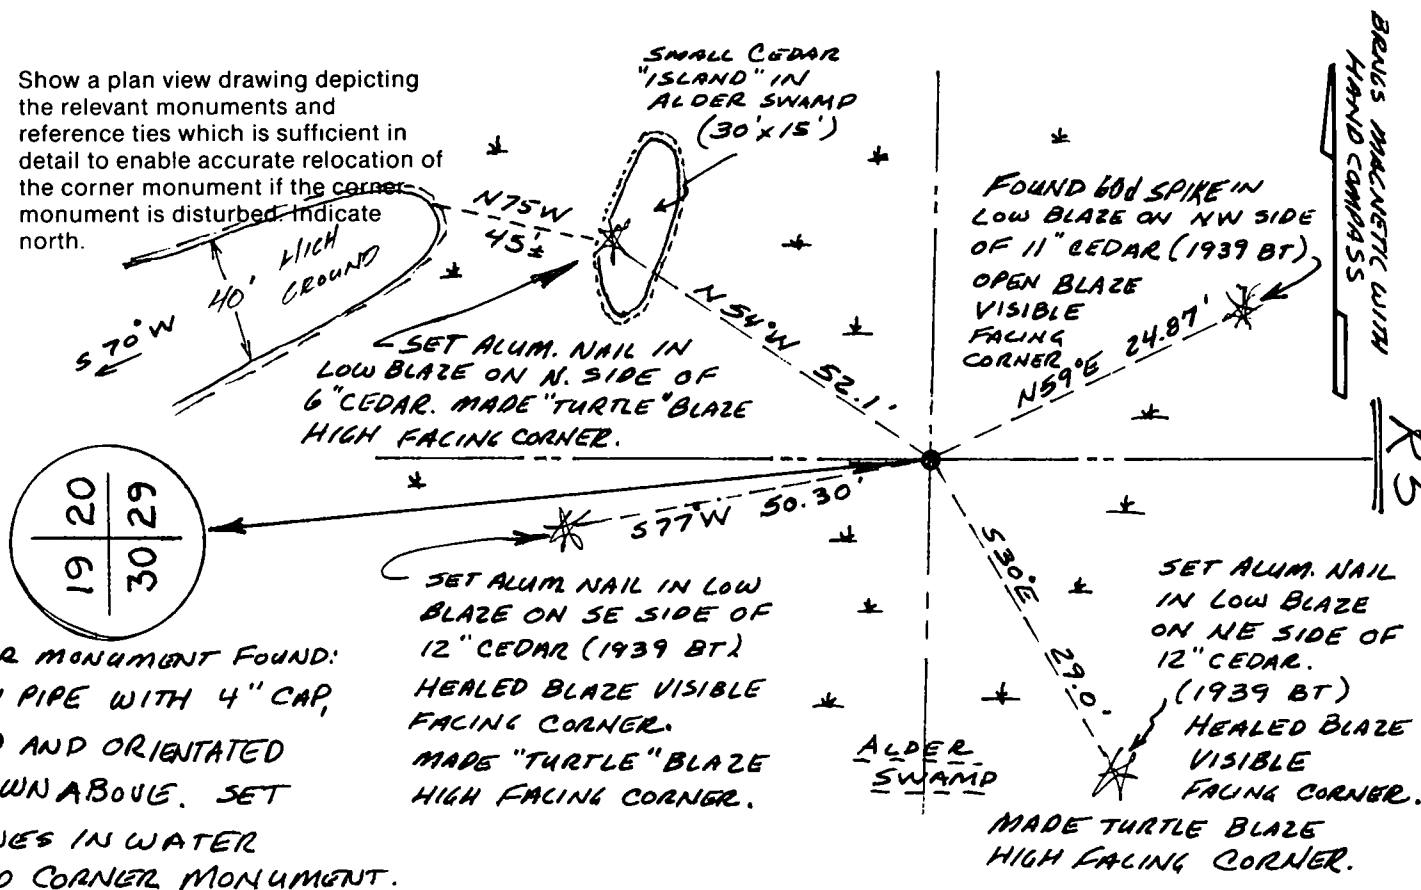 Show a plan view drawing depicting
the relevant monuments and
reference ties which is sufficient in
detail to enable accurate relocation of
the corner monument if the corner
monument is disturbed. Indicate
north.
SMALL CEDAR
"ISLAND" IN
ALDER SWAMP
(30'x15')
BRNGS MAGNETIC WITH
HAND COMPASS
N75W
45'±
HIGH
GROUND
40'
S70°W
FOUND 60d SPIKE IN
LOW BLAZE ON NW SIDE
OF 11" CEDAR (1939 BT)
OPEN BLAZE
VISIBLE
FACING
CORNER
N59°E 24.87'
N54°W 52.1'
SET ALUM. NAIL IN
LOW BLAZE ON N. SIDE OF
6" CEDAR. MADE "TURTLE" BLAZE
HIGH FACING CORNER.
R5
20 29
19 30
S77°W 50.30'
SET ALUM NAIL IN LOW
BLAZE ON SE SIDE OF
12" CEDAR (1939 BT)
HEALED BLAZE VISIBLE
FACING CORNER.
MADE "TURTLE" BLAZE
HIGH FACING CORNER.
S30°E 29.0'
SET ALUM. NAIL
IN LOW BLAZE
ON NE SIDE OF
12" CEDAR.
(1939 BT)
HEALED BLAZE
VISIBLE
FACING CORNER.
MADE TURTLE BLAZE
HIGH FACING CORNER.
ALDER
SWAMP
R MONUMENT FOUND:
PIPE WITH 4" CAP,
AND ORIENTATED
WN ABOVE. SET
NES IN WATER
CORNER MONUMENT.